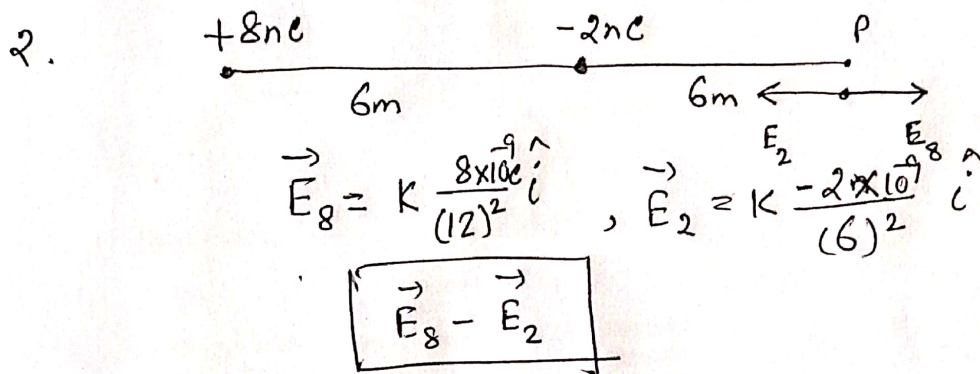 2. +8nC -2nC P
6m 6m
E₂ E₈
E⃗₈ = K 8×10⁻⁹C/(12)² î , E⃗₂ = K -2×10⁻⁹/(6)² î
E⃗₈ - E⃗₂